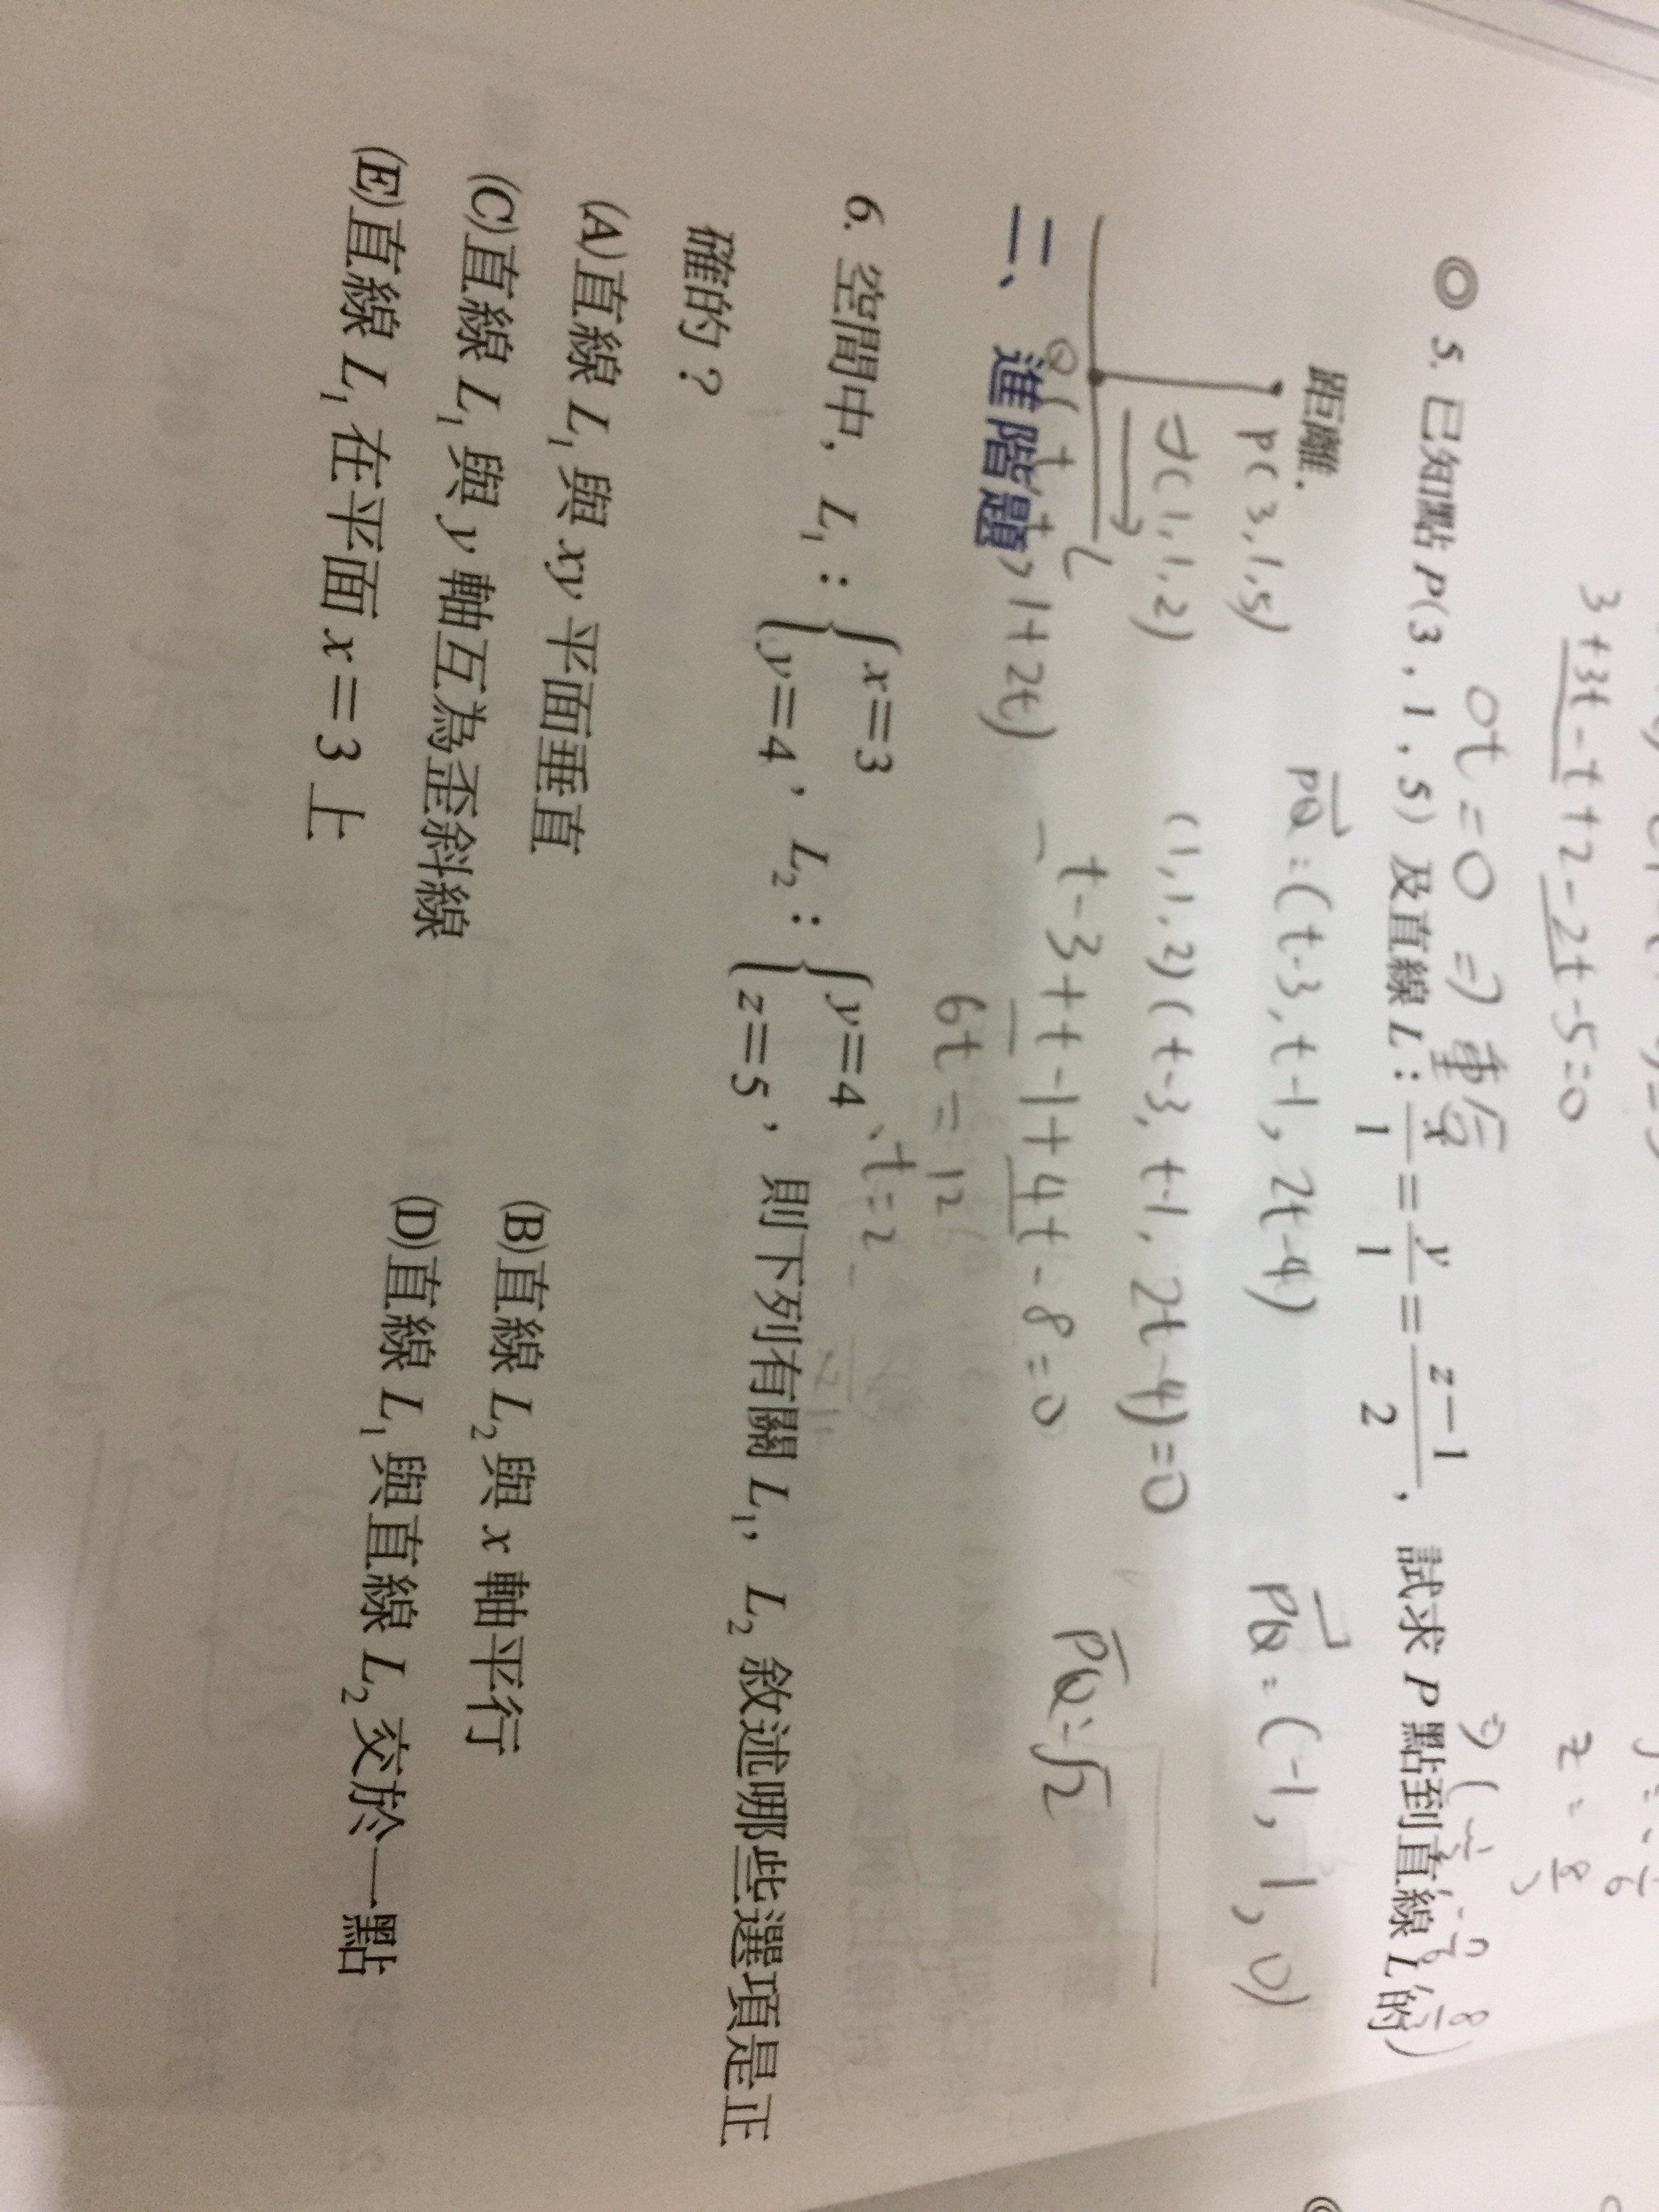 3+3t-t+2-2t-5=0
z=
0t=0 ⇒ 重合
5. 已知點 P(3,1,5) 及直線 L：x/1=y/1=z-1/2，試求 P 點到直線 L 的
距離.
P(3,1,5)
PQ=(t-3,t-1,2t-4)
PQ=(-1,1,0)
(1,1,2)
(1,1,2)(t-3,t-1,2t-4)=0
L
Q(t,t,1+2t)
t-3+t-1+4t-8=0
PQ=√2
二、進階題
6t=12
t=2
6. 空間中，L₁：{x=3 y=4，L₂：{y=4 z=5，則下列有關 L₁，L₂ 敘述哪些選項是正
確的？
(A)直線 L₁ 與 xy 平面垂直
(B)直線 L₂ 與 x 軸平行
(C)直線 L₁ 與 y 軸互為歪斜線
(D)直線 L₁ 與直線 L₂ 交於一點
(E)直線 L₁ 在平面 x=3 上